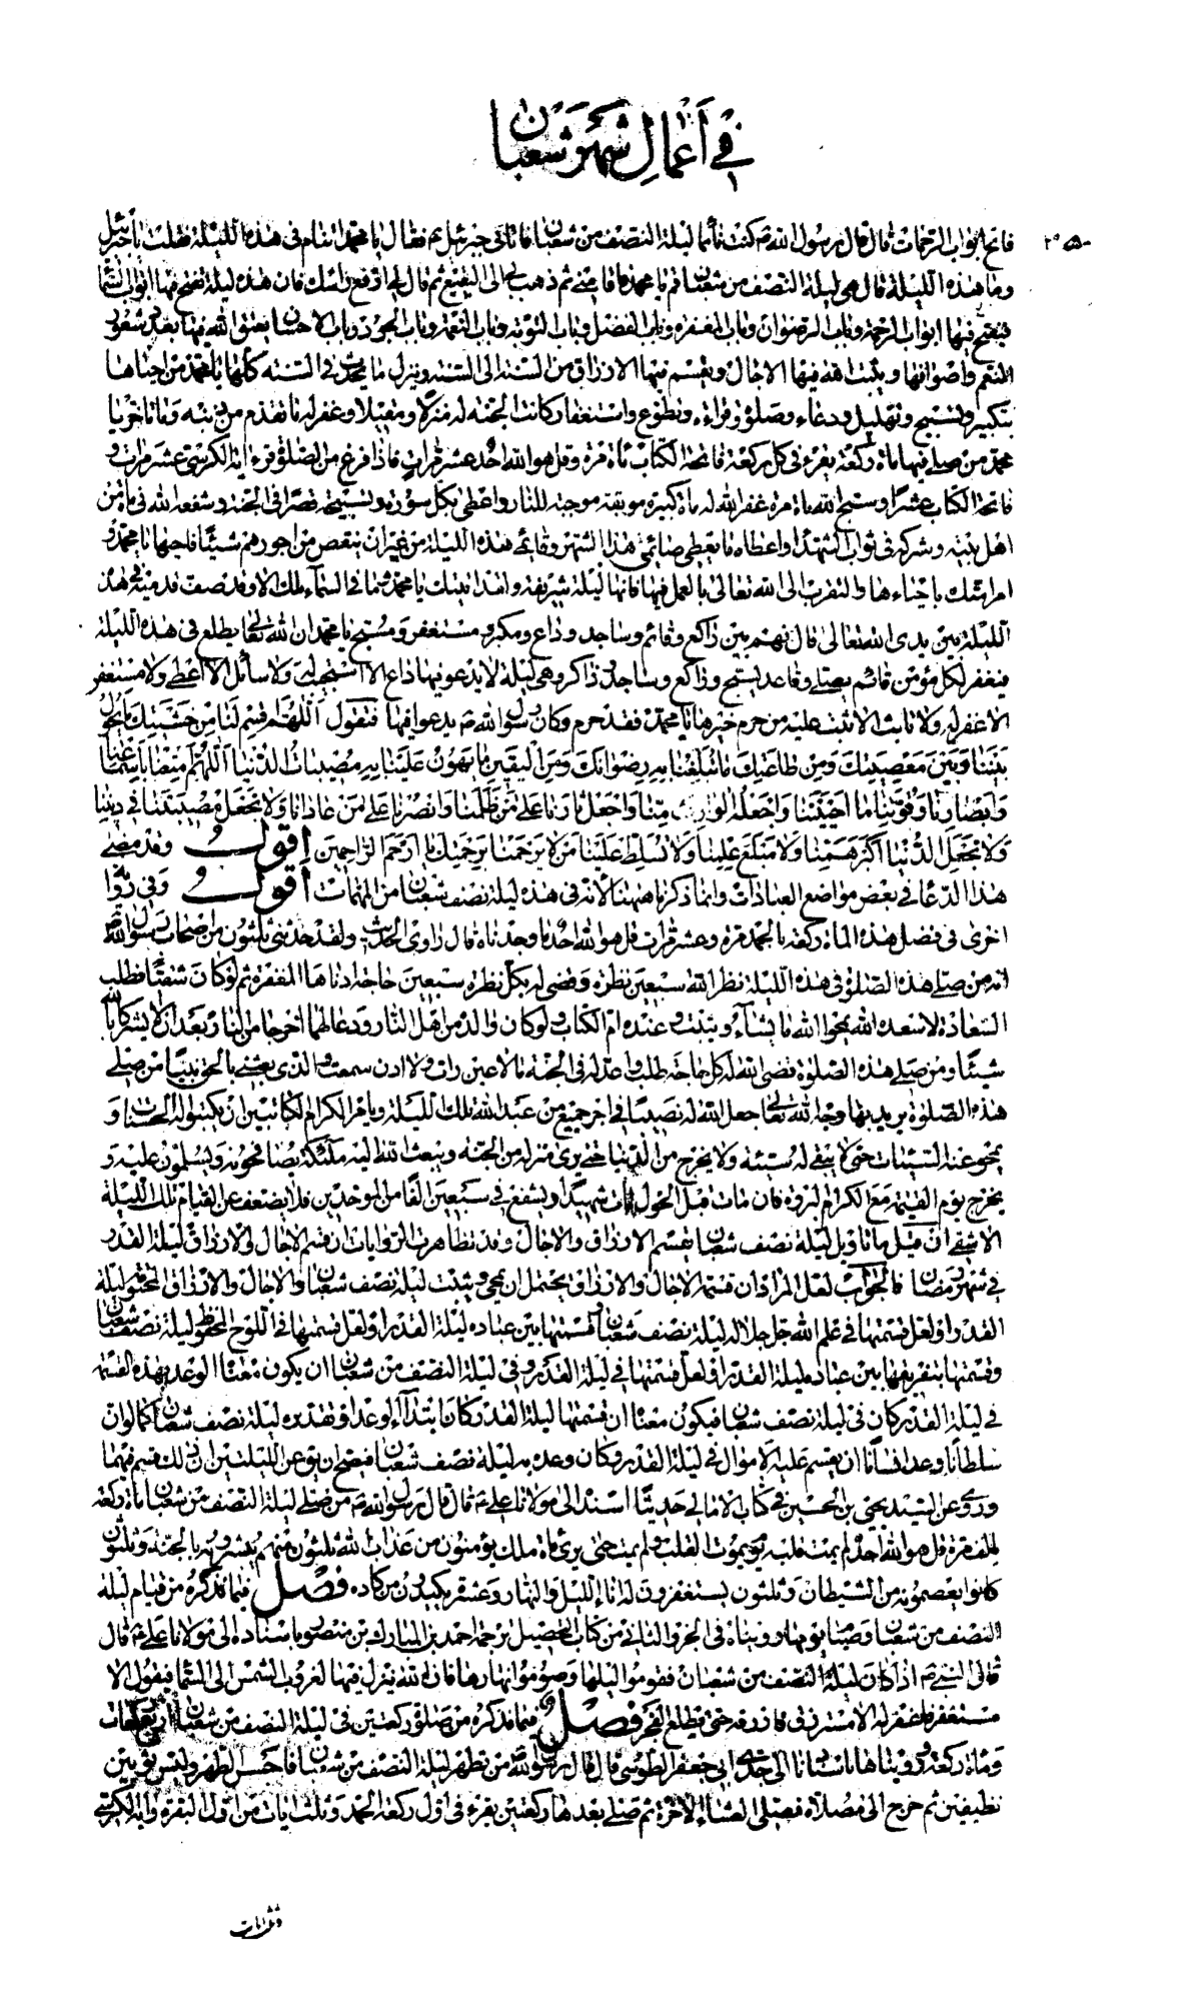 في أعمال شهر شعبان
فاتح ابواب الرحمات قال قال رسول الله ص كنت نائما ليلة النصف من شعبان فاتاني جبرئيل ع فقال يا محمد اتنام في هذه الليلة فقلت يا جبرئيل
وما هذه الليلة قال هي ليلة النصف من شعبان قم يا محمد فاقامني ثم ذهب بي الى البقيع ثم قال لي ارفع راسك فان هذه ليلة تفتح فيها ابواب السما
فيفتح فيها ابواب الرحمة وباب الرضوان وباب المغفره وباب الفضل وباب التوبة وباب النعمة وباب الجود وباب الاحسان يعتق الله فيها بعدد شعور
النعم واصوافها ويثبت الله فيها الاجال ويقسم فيها الارزاق من السنة الى السنة وينزل ما يحدث في السنة كلها يا محمد من احياها
بتكبير وتسبيح وتهليل ودعاء وصلوة وقراءة وتطوع واستغفار كانت الجنة له منزلا ومقيلا وغفر له ما تقدم من ذنبه وما تاخر يا
محمد من صلى فيها مائة ركعة يقرء في كل ركعة فاتحة الكتاب مرة وقل هو الله احد عشر مرات فاذا فرغ من الصلوة قرء اية الكرسي عشر مرات و
فاتحة الكتاب عشرا وسبح الله مائة مرة غفر الله له مائة كبيرة موبقة موجبة للنار واعطى بكل سورة وتسبيحة قصرا في الجنة وشفعه الله في مائة من
اهل بيته وشركه في ثواب الشهداء واعطاه ما يعطي صائمي هذا الشهر وقائمي هذه الليلة من غير ان ينقص من اجورهم شيئا فاحيها يا محمد و
امر امتك باحياءها والتقرب الى الله تعالى بالعمل فيها فانها ليلة شريفة ولقد اتيتك يا محمد وما في السماء ملك الا وقد صف قدميه في هذه
الليلة بين يدي الله تعالى قال فهم بين راكع وقائم وساجد وداع ومكبر ومستغفر ومسبح يا محمد ان الله تعالى يطلع في هذه الليلة
فيغفر لكل مؤمن قائم يصلي وقاعد يسبح وراكع وساجد وذاكر وهي ليلة لا يدعو فيها داع الا استجيب له ولا سائل الا اعطي ولا مستغفر
الا غفر له ولا تائب الا يتب عليه من حرم خيرها يا محمد فقد حرم وكان رسول الله ص يدعوا فيها فيقول اللهم اقسم لنا من خشيتك ما يحول
بيننا وبين معصيتك ومن طاعتك ما تبلغنا به رضوانك ومن اليقين ما يهون علينا به مصيبات الدنيا اللهم متعنا باسماعنا
وابصارنا وقوتنا ما احييتنا واجعله الوارث منا واجعل ثارنا على من ظلمنا وانصرنا على من عادانا ولا تجعل مصيبتنا في ديننا
ولا تجعل الدنيا اكبر همنا ولا مبلغ علمنا ولا تسلط علينا من لا يرحمنا برحمتك يا ارحم الراحمين اقول وقد مضى
هذا الدعا في بعض مواضع العبادات وانما ذكرناه ههنا لانه في هذه ليلة نصف شعبان من المهمات اقول وفي رواية
اخرى في فضل هذه المائة ركعة بالحمد مرة وعشر مرات قل هو الله احد ما وجدناه قال راوي الحديث ولقد حدثني ثلثون من اصحاب رسول الله
انه من صلى هذه الصلوة في هذه الليلة نظر الله سبعين نظرة وقضى له بكل نظرة سبعين حاجة ادناها المغفرة ثم لو كان شقيا فطلب
السعادة لاسعده الله يمحوا الله ما يشاء ويثبت وعنده ام الكتاب ولو كان والده من اهل النار ودعا لهما اخرجا من النار بعد ان لا يشركا بالله
شيئا ومن صلى هذه الصلوة قضى الله له كل حاجة طلب واعد له في الجنة ما لا عين رات ولا اذن سمعت والذي بعثني بالحق نبيا من صلى
هذه الصلوة يريد بها وجه الله تعالى جعل الله له نصيبا في اجر جميع من عبد الله تلك الليلة ويامر الكرام الكاتبين ان يكتبوا له الحسنات و
يمحو عنه السيئات حتى لا يبقى له سيئة ولا يخرج من الدنيا حتى يرى منزله من الجنة ويبعث الله اليه ملئكة يصافحونه ويسلمون عليه و
يخرج يوم القيمة مع الكرام البررة فان مات قبل الحول مات شهيدا ويشفع في سبعين الفا من الموحدين فلا يضعف عن القيام تلك الليلة
الا شقي ان قيل ما تاويل ليلة نصف شعبان يقسم الارزاق والاجال وقد تظاهرت الروايات ان قسم الاجال والارزاق ليلة القدر
في شهر رمضان فالجواب لعل المراد ان قسمة الاجال والارزاق يحتمل ان يمحى ويثبت ليلة نصف شعبان والاجال والارزاق المحتومة ليلة
القدر او لعل قسمتها في علم الله جل جلاله ليلة نصف شعبان وقسمتها بين عباده ليلة القدر او لعل قسمتها في اللوح المحفوظ ليلة نصف شعبان
وقسمتها بتفريقها بين عباده ليلة القدر او لعل قسمتها في ليلة القدر وفي ليلة النصف من شعبان ان يكون معناه ان الوعد بهذه القسمة
في ليلة القدر كان في ليلة نصف شعبان فيكون معناه ان قسمتها ليلة القدر كان ابتداء الوعد او تقديره ليلة نصف شعبان كما لو ان
سلطانا وعد انسانا ان يقسم عليه الاموال في ليلة القدر وكان وعده به ليلة نصف شعبان فيصح ان يق عن الليلتين ان ذلك قسم فيهما
وروي عن السيد يحيى بن الحسين في كتاب الامالي حديثا اسنده الى مولانا علي ع قال قال رسول الله ص من صلى ليلة النصف من شعبان مائة ركعة
بالف مرة قل هو الله احد لم يمت قلبه يوم يموت القلب ولم يمت حتى يرى مائة ملك يؤمنون من عذاب الله ثلثون منهم يبشرونه بالجنة وثلثون
كانوا يعصمونه من الشيطان وثلثون يستغفرون له اناء الليل والنهار وعشر يكيدون من كاده فصل فيما نذكره من قيام ليلة
النصف من شعبان وصيام يومها رويناه في الجزو الثاني من كتاب التحصيل ترجمة احمد بن المبارك بن منصور باسناده الى مولانا علي ع قال
قال النبي ص اذا كان ليلة النصف من شعبان فقوموا ليلها وصوموا نهارها فان الله ينزل فيها لغروب الشمس الى السما فيقول الا
مستغفر فاغفر له الا مسترزق فارزقه حتى يطلع الفجر فصل فيما نذكره من صلوة ركعتين في ليلة النصف من شعبان اربع ركعات
ومائة ركعة رويناها باسنادنا الى جدي ابي جعفر الطوسي قال قال رسول الله ص من تطهر ليلة النصف من شعبان فاحسن الطهر ولبس ثوبين
نظيفين ثم خرج الى مصلاه فصلى العشاء الاخرة ثم صلى بعدها ركعتين يقرء في اول ركعة الحمد وثلث ايات من اول البقرة واية الكرسي